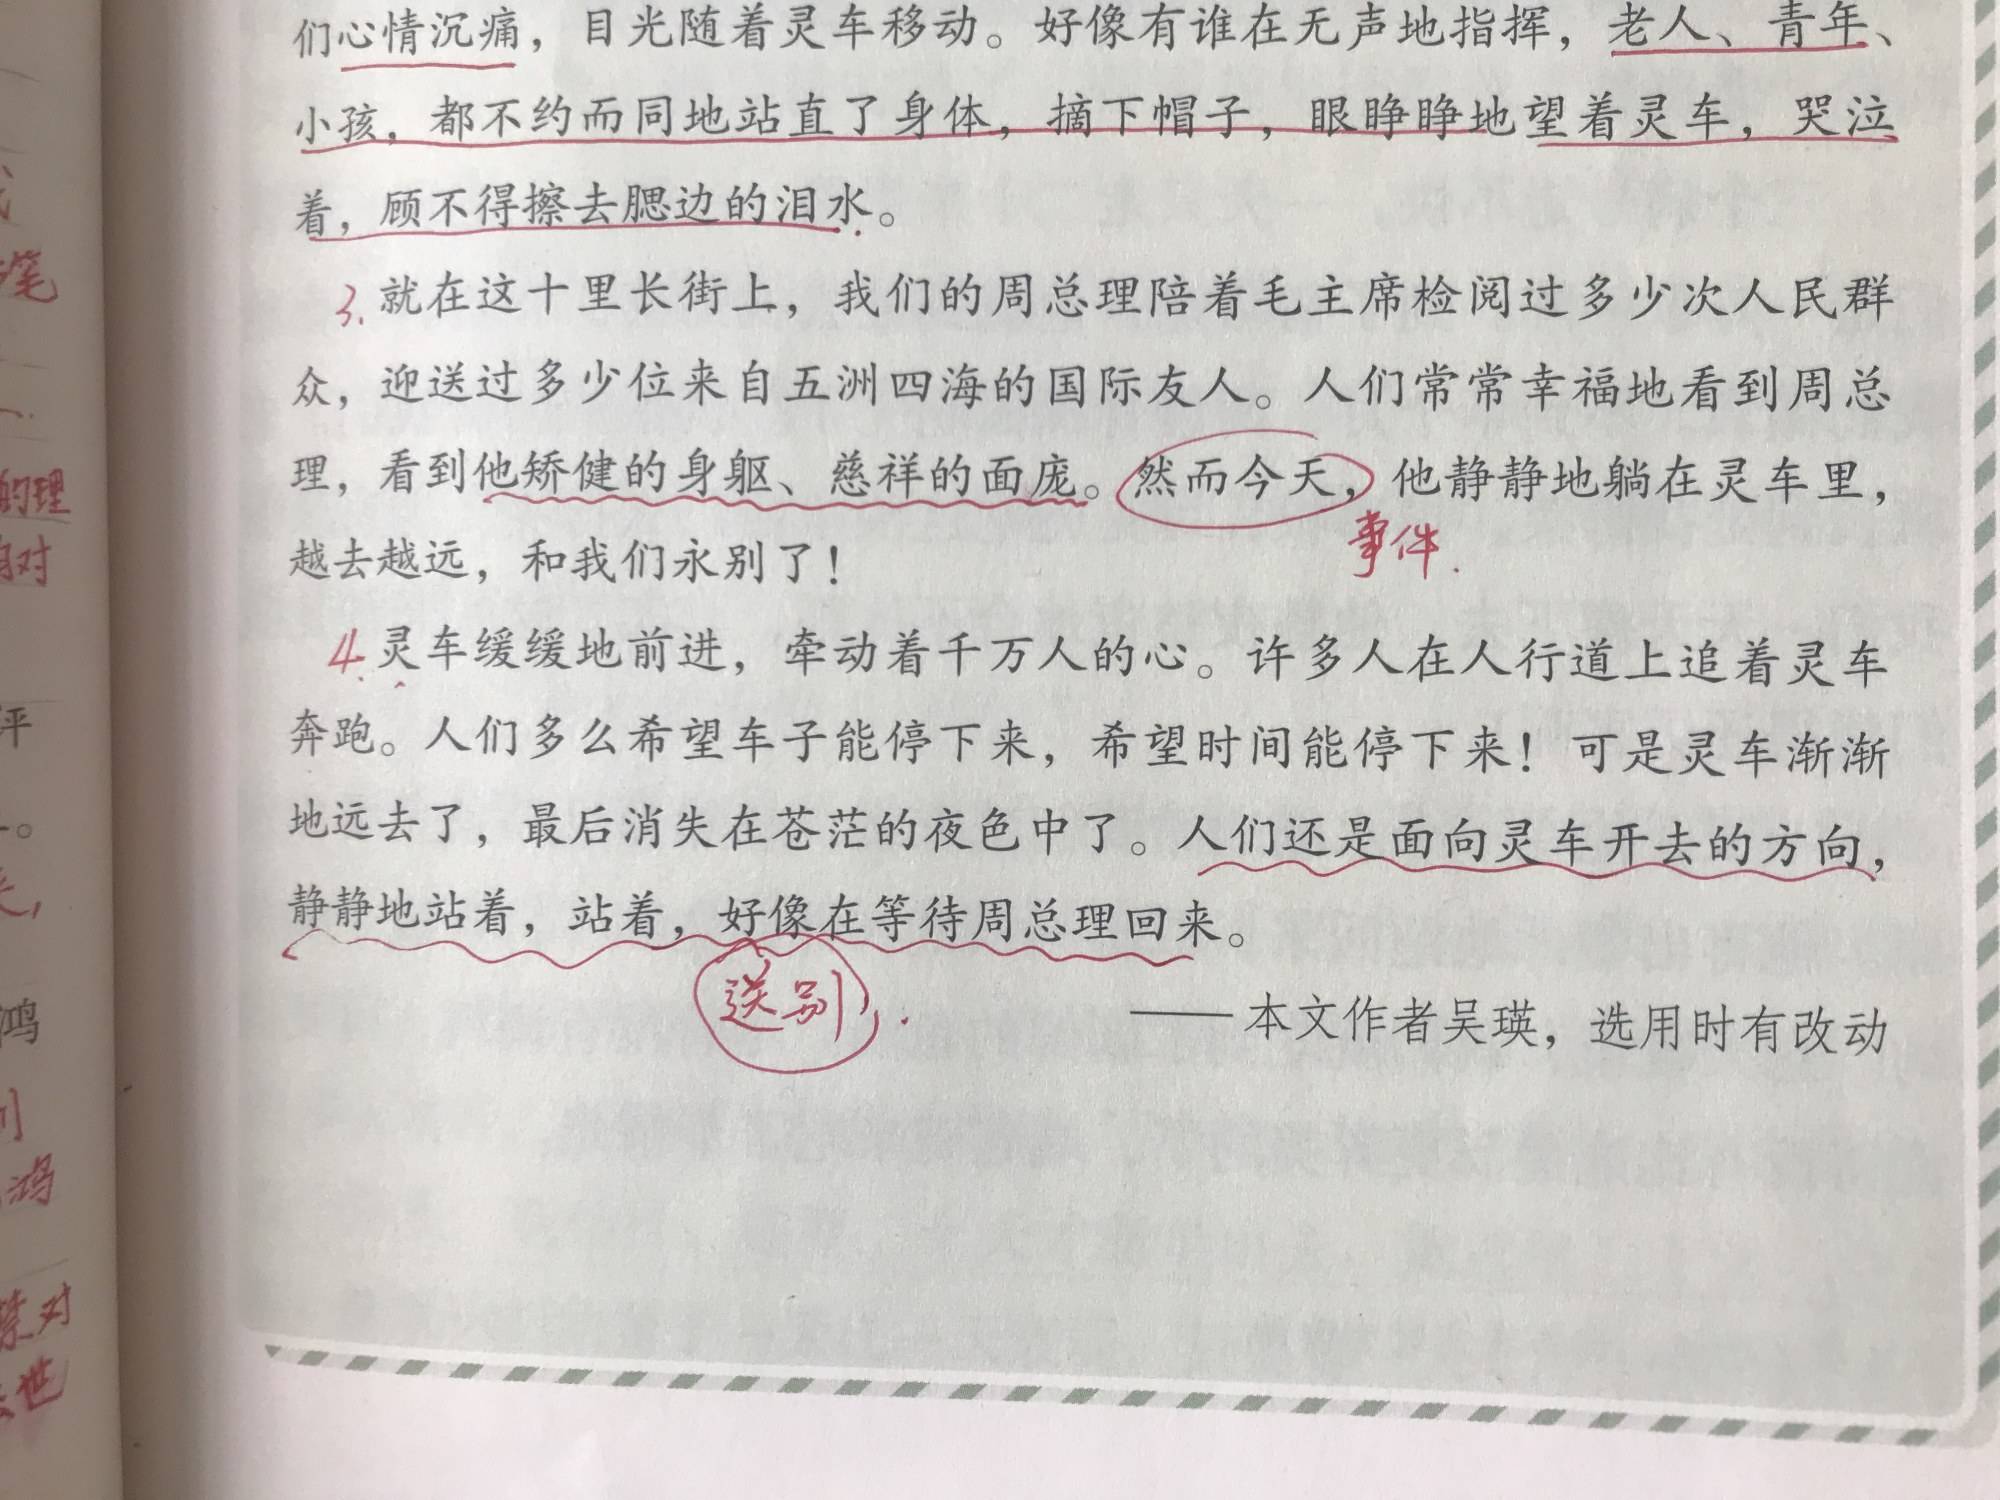 们心情沉痛，目光随着灵车移动。好像有谁在无声地指挥，老人、青年、
小孩，都不约而同地站直了身体，摘下帽子，眼睁睁地望着灵车，哭泣
着，顾不得擦去腮边的泪水。
3. 就在这十里长街上，我们的周总理陪着毛主席检阅过多少次人民群
众，迎送过多少位来自五洲四海的国际友人。人们常常幸福地看到周总
理，看到他矫健的身躯、慈祥的面庞。然而今天，他静静地躺在灵车里，
事件.
越去越远，和我们永别了！
4. 灵车缓缓地前进，牵动着千万人的心。许多人在人行道上追着灵车
奔跑。人们多么希望车子能停下来，希望时间能停下来！可是灵车渐渐
地远去了，最后消失在苍茫的夜色中了。人们还是面向灵车开去的方向，
静静地站着，站着，好像在等待周总理回来。
送别
——本文作者吴瑛，选用时有改动
笔
的理
对
评
鸿
鸿
对
世